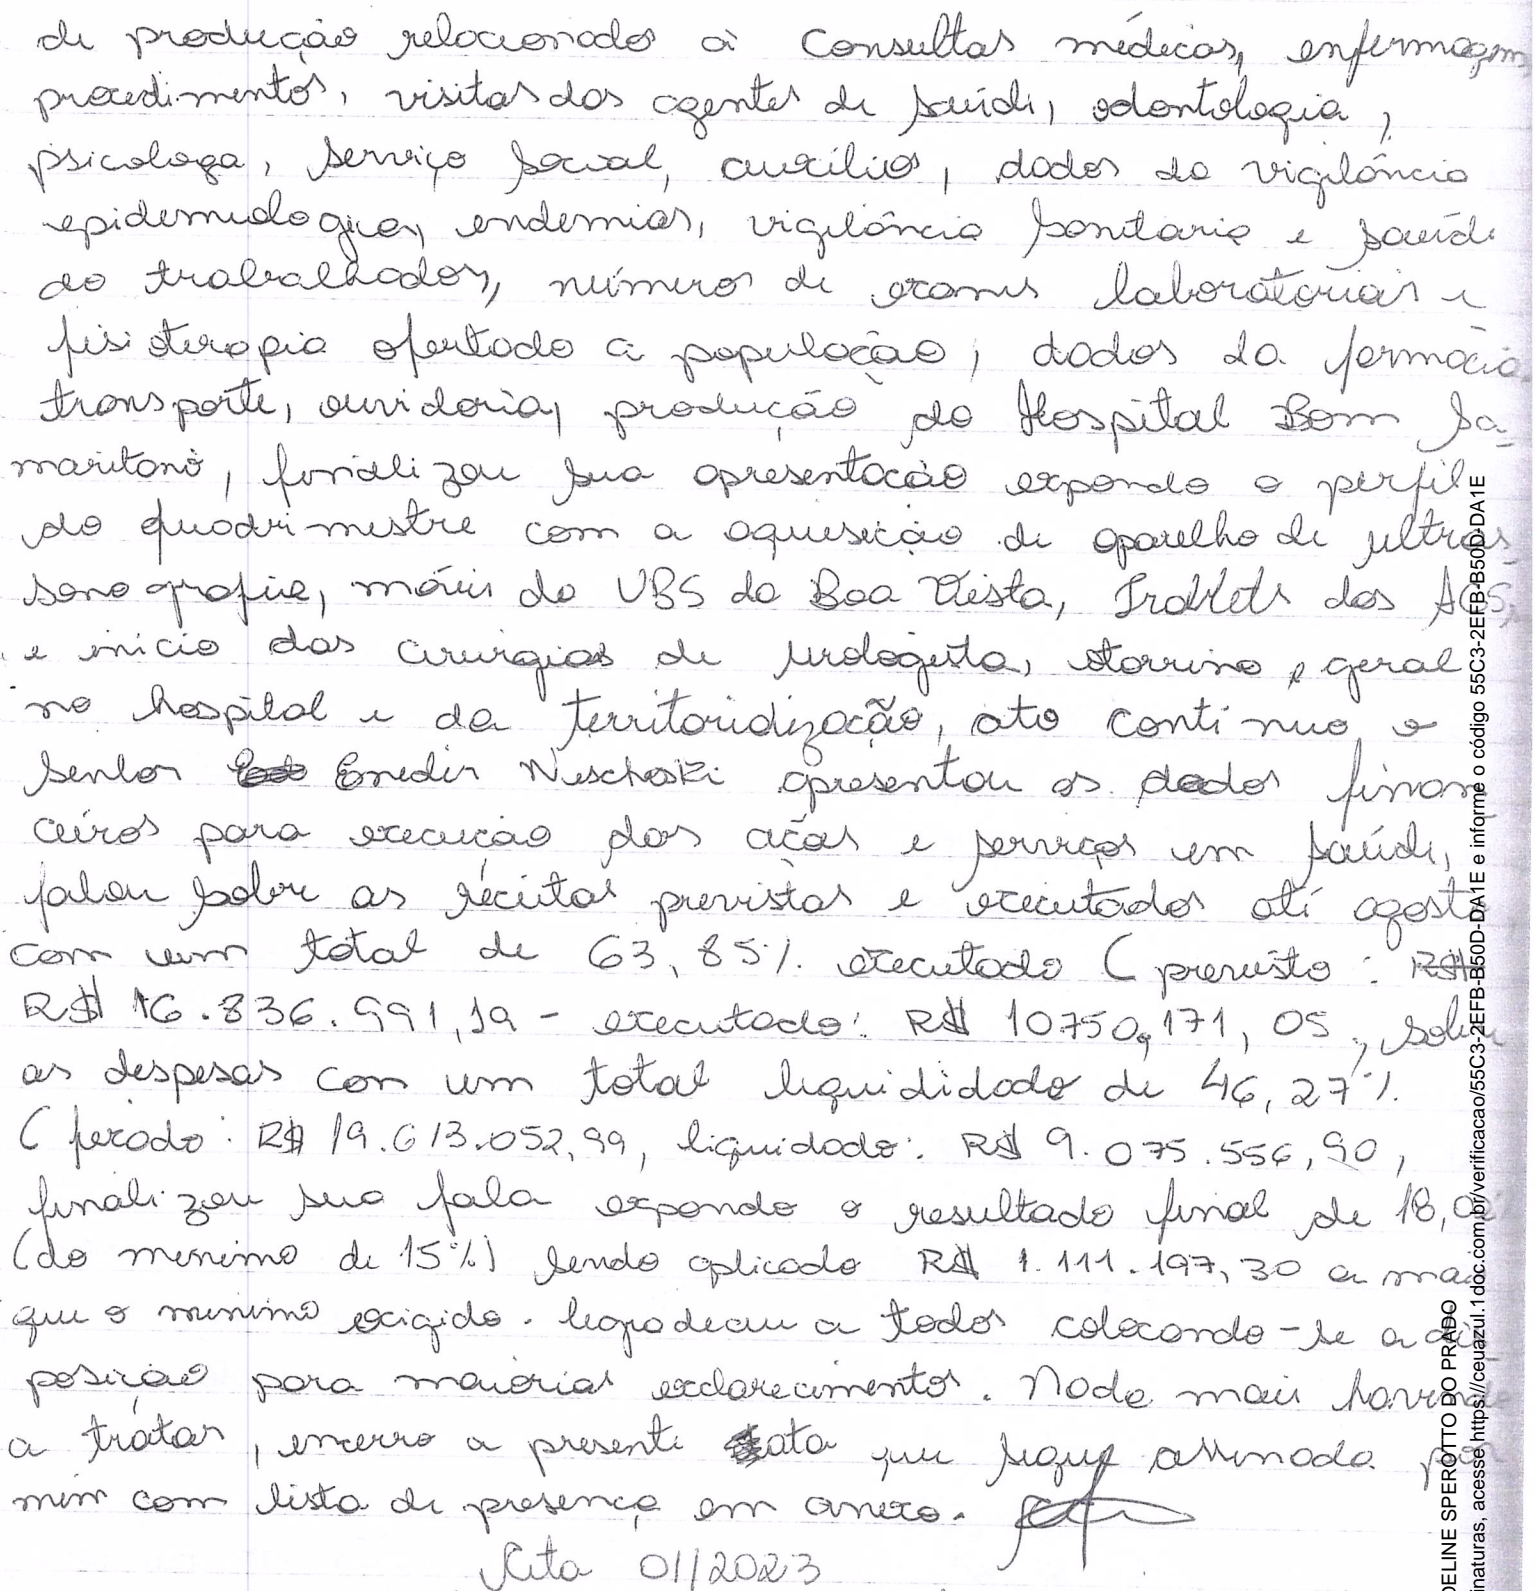 de produção relacionados a consultas médicas, enfermagem
procedimentos, visitas dos agentes de saúde, odontologia,
psicologa, serviço social, auxílios, dados da vigilância
epidemiologica, endemias, vigilância sanitaria e saúde
do trabalhador, números de exames laboratoriais e
fisioterapia ofertado a população, dados da farmácia
transporte, ouvidoria, produção do Hospital Bom Sa-
maritano, finalizou sua apresentação expondo o perfil
do quadrimestre com a aquisição de aparelho de ultras
sonografia, móveis da UBS da Boa Vista, Trablets dos ACS,
e inicio das cirurgias de urologista, otorrino e geral
no hospital e da territorialização, ato contínuo o
senhor Enedir apresentou os dados finan
ceiros para execução das ações e serviços em saúde,
falou sobre as receitas previstas e executados até agosto
com um total de 63,85% executado (previsto: R$
R$ 16.836.991,19 - executado: R$ 10750,171,05, sobre
as despesas com um total liquididado de 46,27%.
( R$ 19.613.052,99, liquidado: R$ 9.075.556,90,
finalizou sua fala expondo o resultado final de 18,02
(do minimo de 15%) sendo aplicado R$ 1.111.197,30 a mais
que o minimo exigido. Agradeceu a todos colocando-se a dis
posição para maiorias esclarecimentos. Nada mais havendo
a tratar, encerro a presente ata que segue assinada por
mim com lista de presença em anexo.
Ata 01/2023
DELINE SPEROTTO DO PRADO
inaturas, acesse https://ceuazul.1doc.com.br/verificacao/55C3-2EFB-B50D-DA1E e informe o código 55C3-2EFB-B50D-DA1E